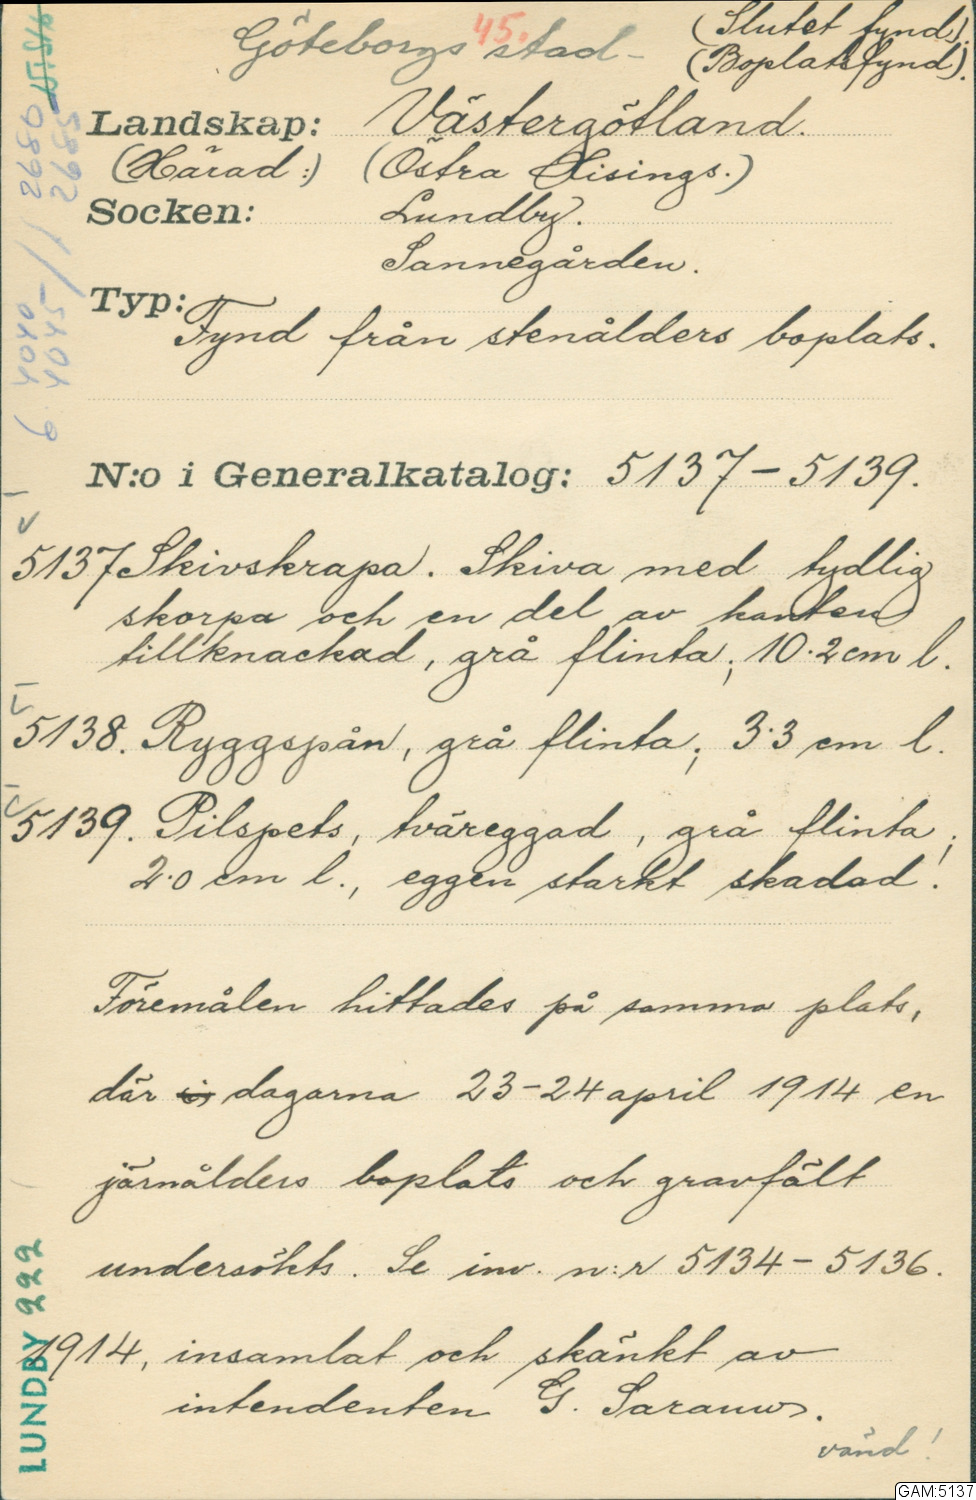 45.
Göteborgs stad –
(Slutet fynd).
(Boplatsfynd).
Landskap: Västergötland.
(Härad:) (Östra Hisings.)
Socken: Lundby.
Sannegården.
Typ:
Fynd från stenålders boplats.
N:o i Generalkatalog: 5137–5139.
5137 Skivskrapa. Skiva med tydlig
skorpa och en del av kanten
tillknackad, grå flinta; 10.2 cm l.
5138. Ryggspån, grå flinta; 3.3 cm l.
5139. Pilspets, tväreggad, grå flinta;
2.0 cm l., eggen starkt skadad.
Föremålen hittades på samma plats,
där dagarna 23–24 april 1914 en
järnålders boplats och gravfält
undersökts. Se inv. n:r 5134–5136.
1914, insamlat och skänkt av
intendenten G. Sarauw.
vänd!
LUNDBY 222
6 4040 / 2680
4045 / 2685
GAM:5137